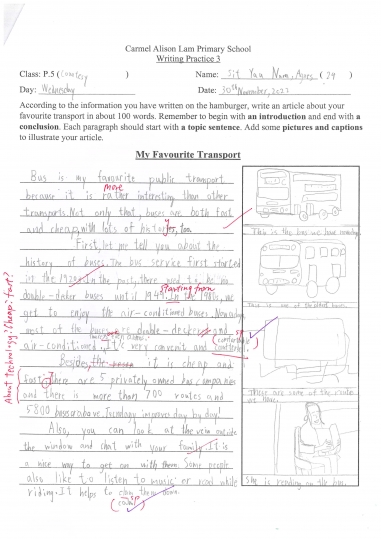 Carmel Alison Lam Primary School
Writing Practice 3
Class: P.5 ( Courtesy )
Name: Sit Yau Nam, Agnes ( 24 )
Day: Wednesday
Date: 30th November, 2022
According to the information you have written on the hamburger, write an article about your
favourite transport in about 100 words. Remember to begin with an introduction and end with a
conclusion. Each paragraph should start with a topic sentence. Add some pictures and captions
to illustrate your article.
My Favourite Transport
Bus is my favourite public transport
more
because it is rather interesting than other
transports. Not only that, buses are both fast
and cheap, with lots of histories, too.
First, let me tell you about the
history of buses. The bus service first started
in the 1920s. In the past, there used to be no
double-decker buses until 1949. In the 1980s, we
Starting from
get to enjoy the air-conditioned buses. Nowadays,
most of the buses are double-decker and
air-conditioned. It's very convenit and
Besides, the it is cheap and
fast. There are 5 privately owned bus companies
and there is more than 700 routes and
5800 buses above. Tuesday improve day by day!
Also, you can look at the view outside
the window and chat with your family. It is
a nice way to get on with them. Some people
also like to listen to music or read while
riding. It helps to them down.
About technology? Cheap? fast?
This is the bus we have nowadays.
This is one of the oldest buses.
These are some of the routes
at home.
She is reading on the bus.